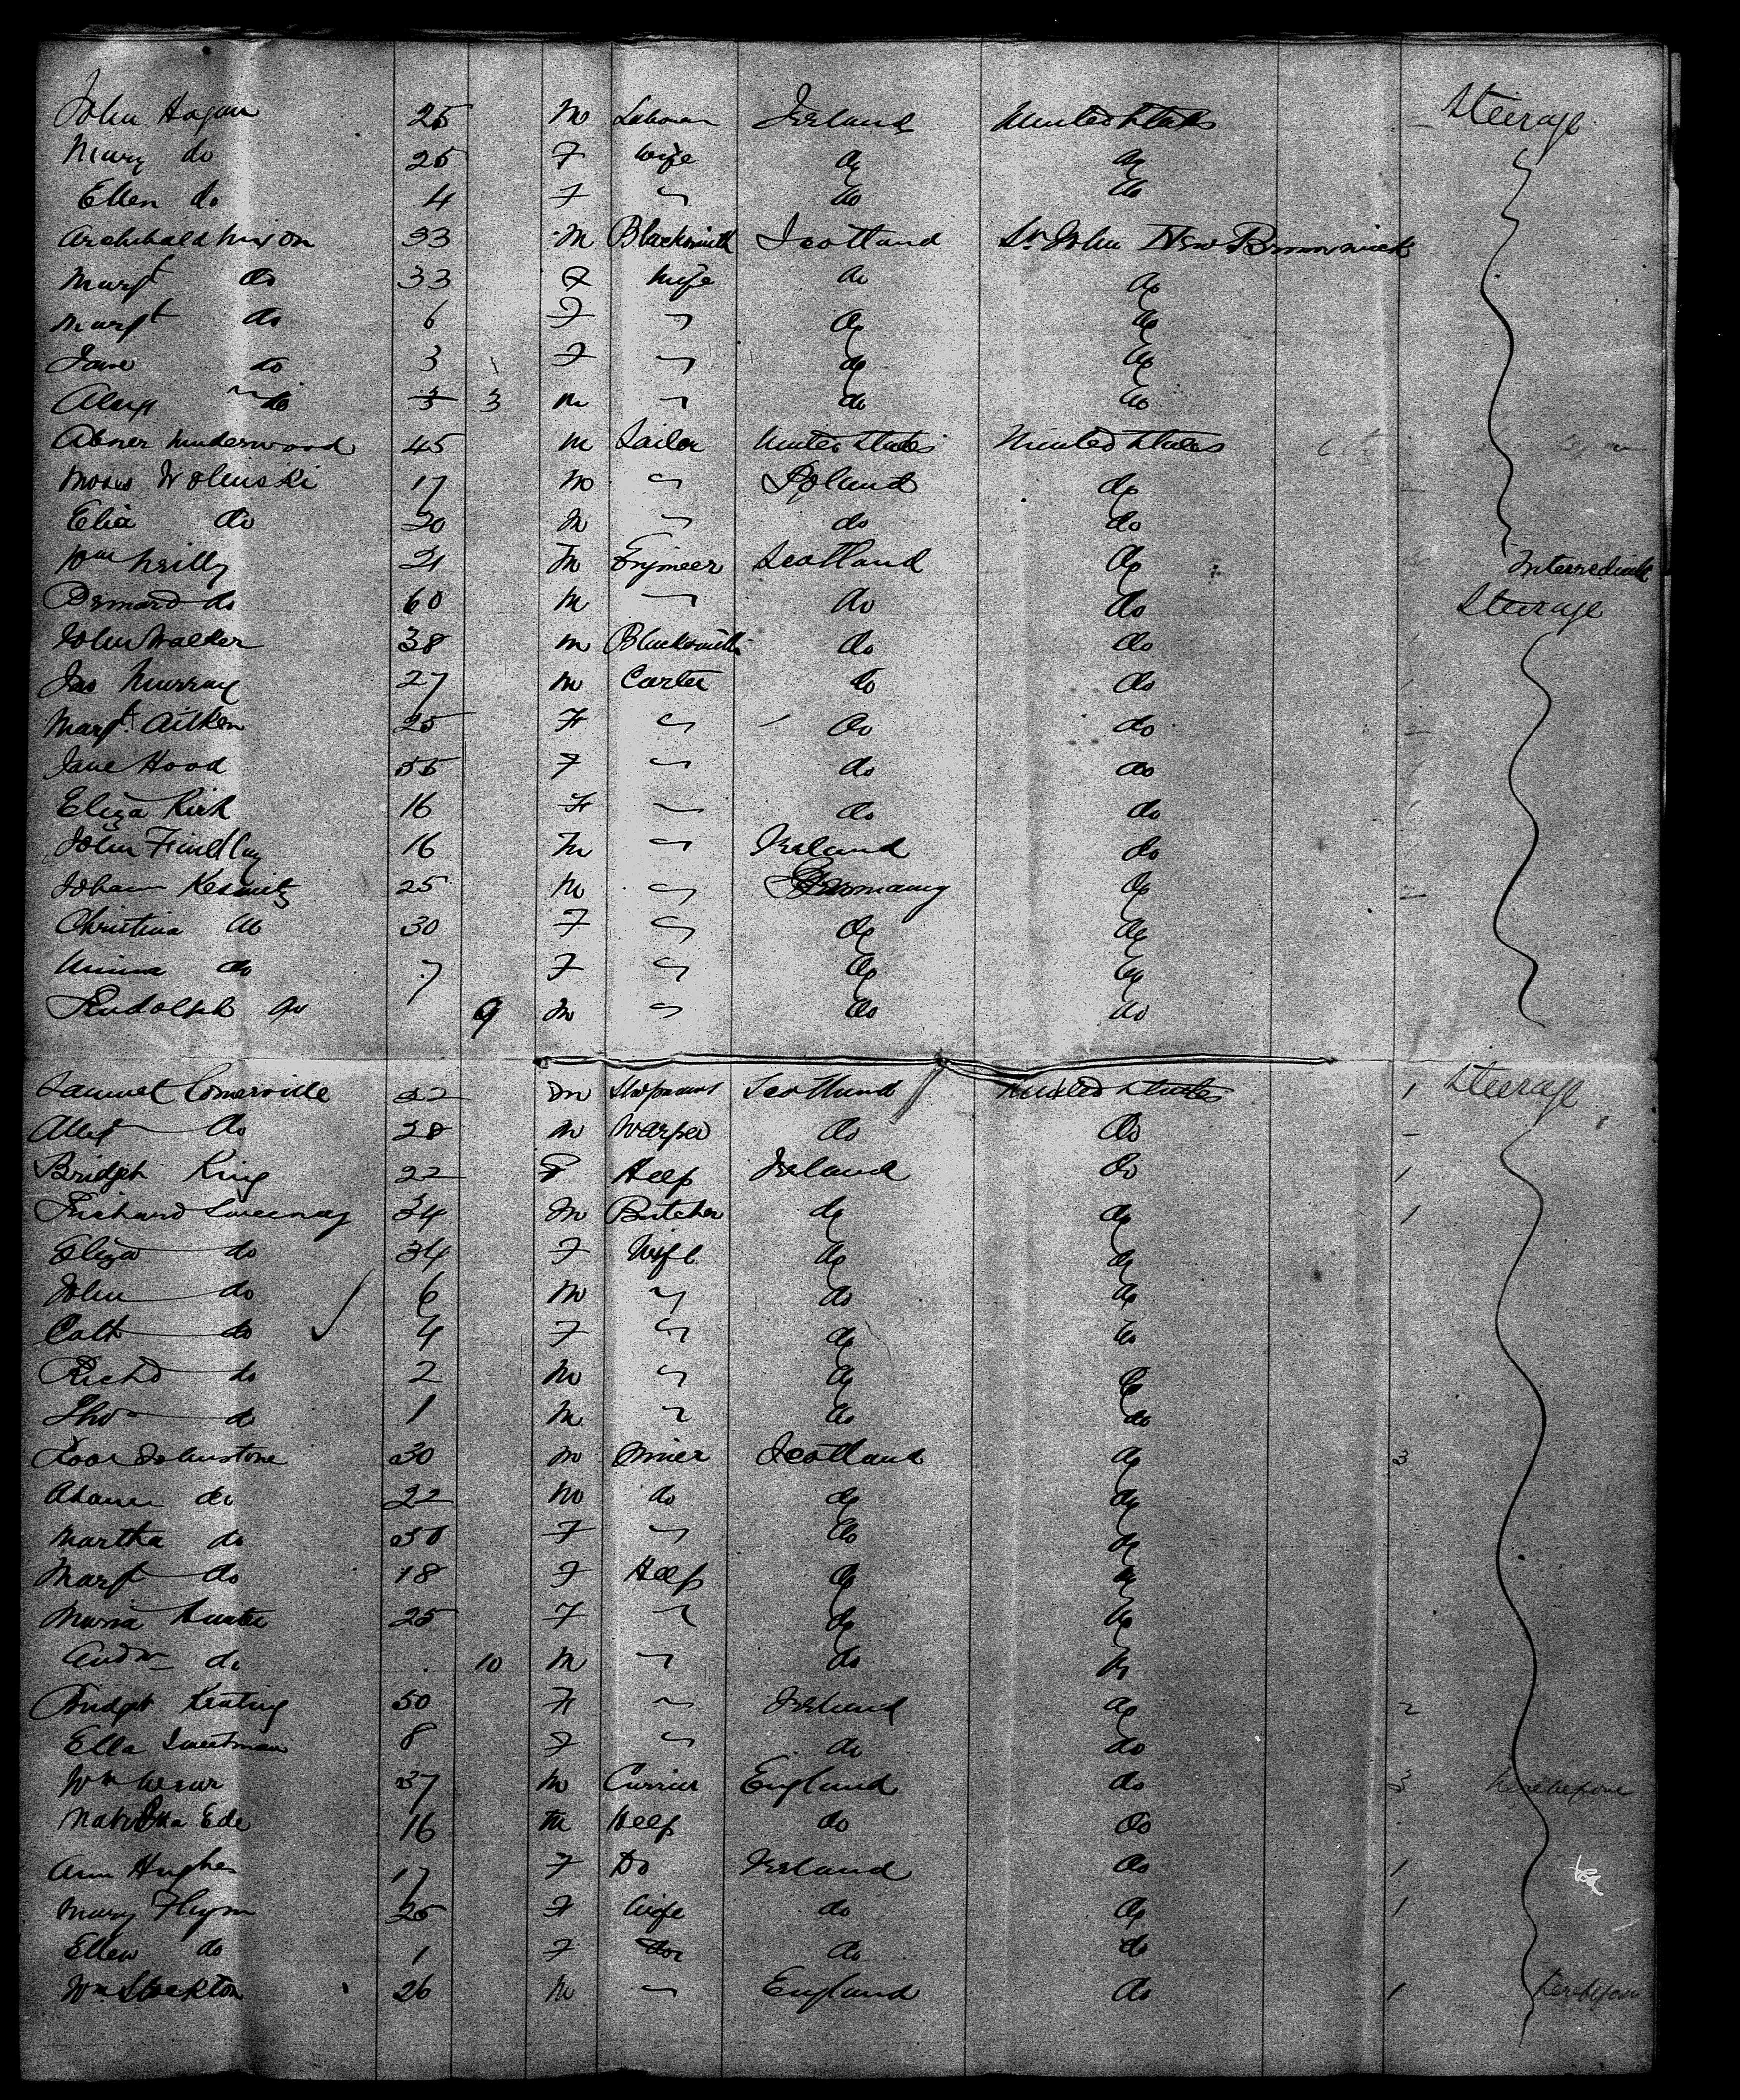 John Hagan 25 M Laborer Ireland United States Steerage
Mary do 25 F Wife do do
Ellen do 4 F " do do
Archibald Nixon 33 M Blacksmith Scotland St John New Brunswick
Margt do 33 F Wife do do
Margt do 6 F " do do
Jane do 3 F " do do
Alexr do 3 3 M " do do
Abner Underwood 45 M Sailor United States United States
Moses Wolinski 17 M " Poland do
Elia do 20 M " do do
Wm Reilly 21 M Engineer Scotland do Intermediate
Bernard do 60 M " do do Steerage
John Walker 38 M Blacksmith do do
Jas Murray 27 M Carter do do
Margt. Aitken 25 F " do do
Jane Hood 55 F " do do
Eliza Kirk 16 F " do do
John Findlay 16 M " Ireland do
Johann Kesmitz 25 M " Germany do
Christina do 30 F " do do
Minna do 7 F " do do
Rudolph do 9 M " do do
Samuel Comerville 22 M Scotland United States 1 Steerage
Alexr do 28 M Warper do do
Bridget King 22 F Help Ireland do 1
Richard Sweeney 34 M Butcher do do 1
Eliza do 34 F Wife do do
John do 6 M " do do
Cath do 4 F " do do
Richd do 2 M " do do
Tho do 1 M " do do
Robt Johnstone 30 M Miner Scotland do 3
Adam do 22 M do do do
Martha do 50 F " do do
Margt do 18 F Help do do
Maria Hunter 25 F " do do
Andw do 10 M " do do
Bridget Keating 50 F " Ireland do 2
Ella Sweetman 8 F " do do
Wm 37 M Currier England do 3
Ede 16 M Help do do
Ann Hughes 17 F Do Ireland do 1
Mary Flynn 25 F Wife do do 1
Ellen do 1 F do do
Wm Stockton 26 M " England do 1